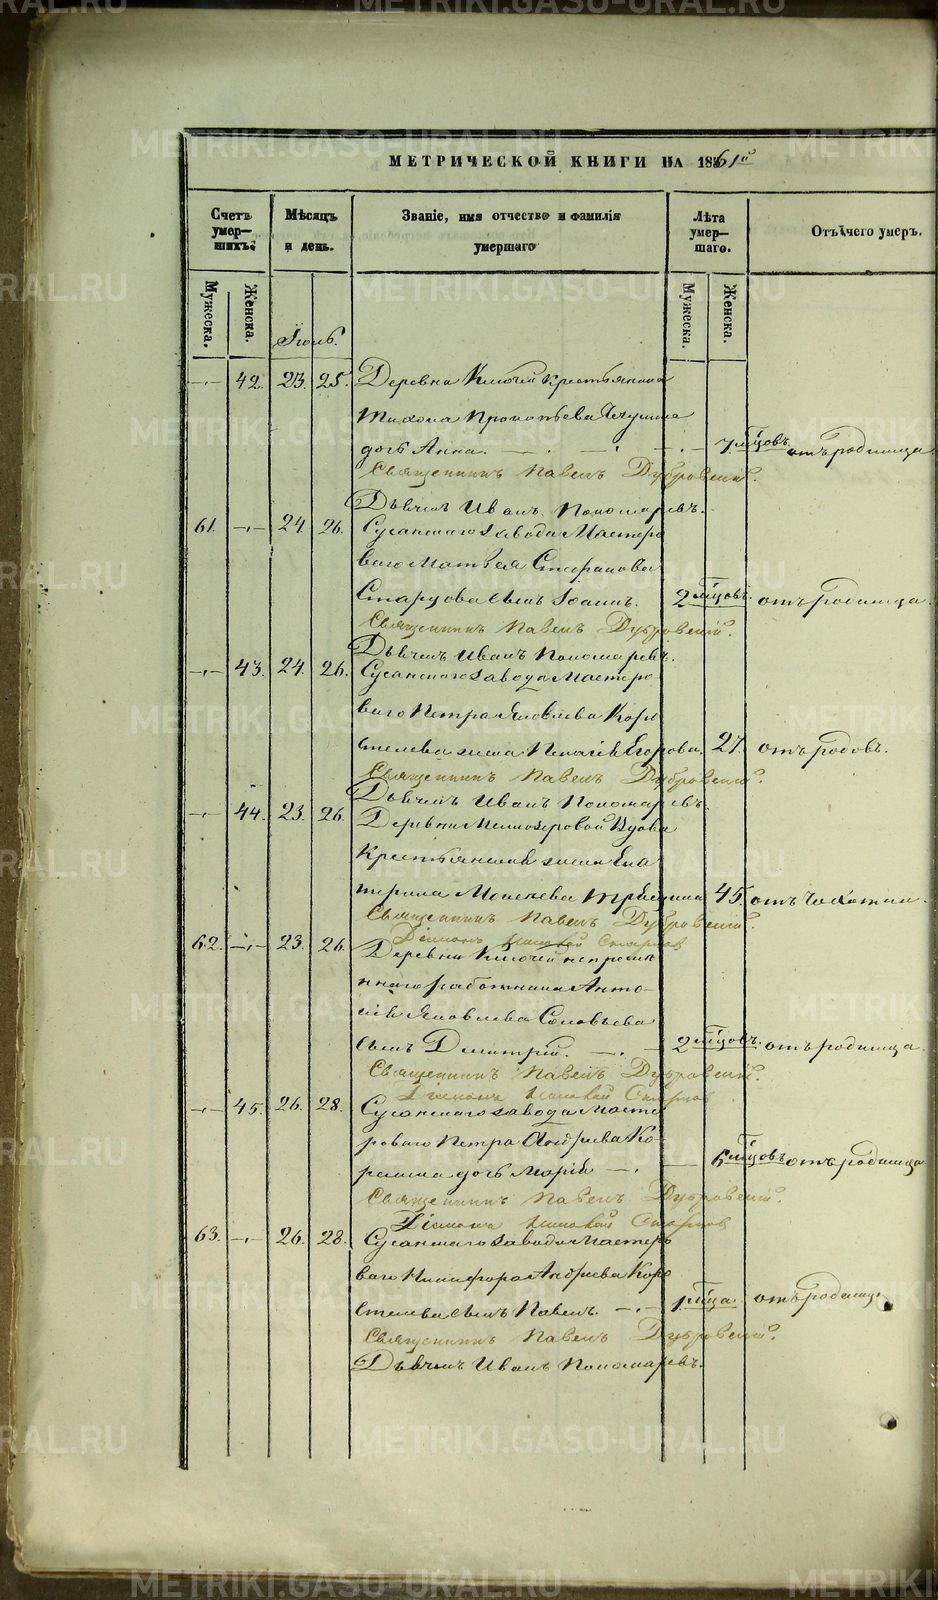 МЕТРИЧЕСКОЙ КНИГИ НА 1861й
Счетъ умер-шихъ.
Мѣсяцъ и день.
Званіе, имя отчество и фамилія умершаго
Лѣта умер-шаго.
Отъ чего умеръ.
Мужеска.
Женска.
Мужеска.
Женска.
42. 23. 25. Деревни Ключей крестьянина
Тихона Прокопьева
дочь Анна. 7 мцовъ. отъ родимца
Священникъ Павелъ Дубровскій.
Дьячекъ Иванъ Пономаревъ.
61. 24. 26. Сусанскаго завода Мастеро
ваго Матвея Стефанова
Старцова сынъ Іоаннъ. 2 мцовъ. отъ родимца.
Священникъ Павелъ Дубровскій.
Дьячекъ Иванъ Пономаревъ.
43. 24. 26. Сусанскаго завода Мастеро
ваго Петра Яковлева Коро
стелева жена Егорова. 27. отъ родовъ.
Священникъ Павелъ Дубровскій.
Дьячекъ Иванъ Пономаревъ.
44. 23. 26. Деревни вдова
Крестьянская жена Ека
терина Моисеева 45. отъ чахотки.
Священникъ Павелъ Дубровскій.
Діаконъ
62. 23. 26. Деревни Ключей непремѣ
ннаго работника Анто-
нія Яковлева Соловьева
сынъ Димитрій. 2 мцовъ. отъ родимца.
Священникъ Павелъ Дубровскій.
Діаконъ
45. 26. 28. Сусанскаго завода Масте
роваго Петра Андреева Ко-
дочь Марія 6 мцовъ отъ родимца
Священникъ Павелъ Дубровскій.
Діаконъ
63. 26. 28. Сусанскаго завода Мастеро
ваго Никифора Андреева Коро
стелева сынъ Павелъ. 1 мца. отъ родимца
Священникъ Павелъ Дубровскій.
Дьячекъ Иванъ Пономаревъ.
METRIKI.GASO-URAL.RU